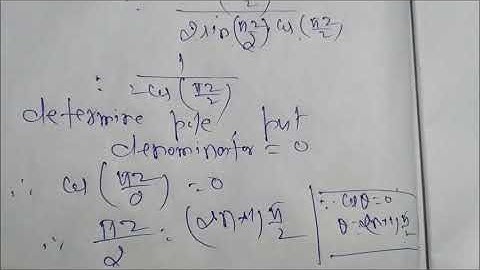 2 sin(πz/2) cos(πz/2)
: 1/(2 cos(πz/2))
determine pole, put
denominator = 0
∴ cos(πz/2) = 0
∵ cosθ = 0
∴ πz/2 = (2n+1) π/2
θ = (2n+1) π/2